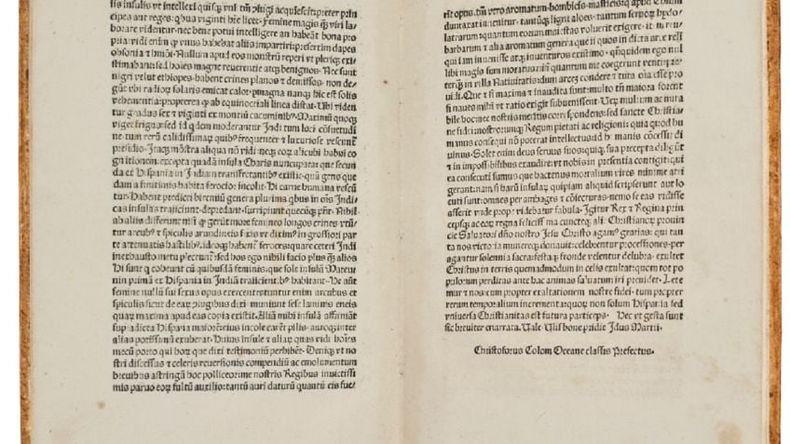 lis insulis vt intellexi quisq; vni tm̄ Piugi acquiescit: preter prin
cipes aut reges: qbus viginti hrē licet. Femine magis q̃ᷓ viri la-
borare videntur. nec bene potui intelligere an habeāt bona pro
pria: vidi enim q vnus habebat aliis impartiri: presertim dapes
obsonia et hmōi. Nullum apud eos monstrū reperi vt pleriq; exi-
stimabant: sed hoies magne reuerentie atq; benignos. Nec sunt
nigri velut ethiopes: habent crines planos et demissos. non de-
gūt vbi radioꝝ solaris emicat calor. permagna nanq; hic est solis
vehementia: propterea q ab equinoctiali linea distat. Vbi viden
tur gradus sex et viginti ex montiū cacuminibꝰ. Maximū quoq;
viget frigus: sed id qdem moderantur Indi tum loci cosuetudi
ne: tum rerū calidissimaꝝ quibꝰ frequenter et luxuriose vescunt̄
presidio. Itaq; mōstra aliqua nō vidi: neq; eoꝝ alicubi habui co
gnitionem: excepta quadā insula Charis nuncupata: que secun
da ex Hispania in Indiam transfretantibꝰ existit. quā gens que
dam a finitimis habita ferocior incolit. Hi carne humana vescū
tur. Habent predicti biremiū genera plurima qbus in oēs Indi-
cas insulas traiiciunt: depredant: surripiunt quecūq; pñt. Nihil
ab aliis differunt nisi q gerūt more femineo longos crines: vtūn
tur arcubꝰ et spiculis arundineis: fixis vt diximꝰ in grossiori par
te attenuatis hastilibꝰ. ideoq; habent̄ feroces: quare ceteri Indi
inexhausto metu plectunt̄: sed hos ego nihili facio plusq̃ᷓ alios
Hi sunt q coheunt cū quibusdā feminis: que sole insulā Mateur
nin primā ex Hispania in Indiā traiicient.bꝰ habitant. He aūt
femine nullū sui sexus opus exercent: vtuntur enim arcubus et
spiculis sicut de eaꝝ piugibus dixi. muniunt sese laminis eneis
quaꝝ maxima apud eas copia existit. Aliam mihi insulā affirmāt
supradicta Hispana maiorē: eius incole carēt pilis. auroq; inter
alias potissimū exuberat. Huius insule et aliaꝝ quas vidi hoies
mecū porto qui hoꝝ que dixi testimoniū perhibēt. Deniq; vt no
stri discessus et celeris reuersionis compendiū ac emolumentum
breuibus astringā. hoc polliceor me nostris Regibus inuictissi
mis paruo eoꝝ fultū auxilio: tantū auri daturū quantū eis fue-
rit opus. tm̄ vero aromatum. bombicis. masticis: q apud Chium
duntaxat inuenitur. tantūq; ligni aloes. tantum seruoꝝ hydo-
latrarum: quantum eorum maiestas voluerit exigere. item reu-
barbarum et alia aromatum genera que ii quos in dicta arce reli
qui iam inuenisse atq; inuenturos existimo. qñquidem ego nul
libi magis sum moratus nisi quantum me coegerunt venti: pre-
terq̃ᷓ in villa Natiuitatis: dum arcem condere et tuta oīa esse pro
uidi. Que et si maxima et inaudita sunt: multo tn̄ maiora forent
si naues mihi vt ratio exigit subuenissent. Veꝝ multum ac mira
bile hoc: nec nostris meritis correspondens: sed sancte Christia-
ne fidei: nostrorumq; Regum pietati ac religioni: quia quod hu
manus consequi nō poterat intellectus: id humanis cōcessit di-
uinus. Solet enim deus seruos suos: quiq; sua precepta diligūt
et in impossibilibus exaudire: vt nobis in presentia contigit: qui
ea consecuti sumus que hactenus mortalium vires minime atti
gerant. nam si haꝝ insulaꝝ quipiam aliquid scripserunt aut lo
cuti sunt: omnes per ambages et cōiecturas: nemo se eas vidisse
asserit. vnde prope videbatur fabula. Igitur Rex et Regina prin
cepsq; ac eoꝝ regna felicissima cuncteq; alie Christianoꝝ prouin
cie Saluatori dño nostro Iesu Christo agamꝰ gratias: qui tan
ta nos victoria munereq; donauit: celebrentur processiones. per
agantur solennia sacra: festaq; fronde velentur delubra. exultet
Christus in terris quemadmodum in celis exultat: quom tot po
pulorum perditas ante hac animas saluatum iri preuidet. Lete
mur et nos: cum propter exaltationem nostre fidei. tum propter
rerum temporalium incrementa: quoꝝ non solum Hispania sed
vniuersa Christianitas est futura particeps. Hec vt gesta sunt
sic breuiter enarrata. Vale. Vlisbone pridie Idus Martii.
Christoforus Colom Oceane classis Prefectus.